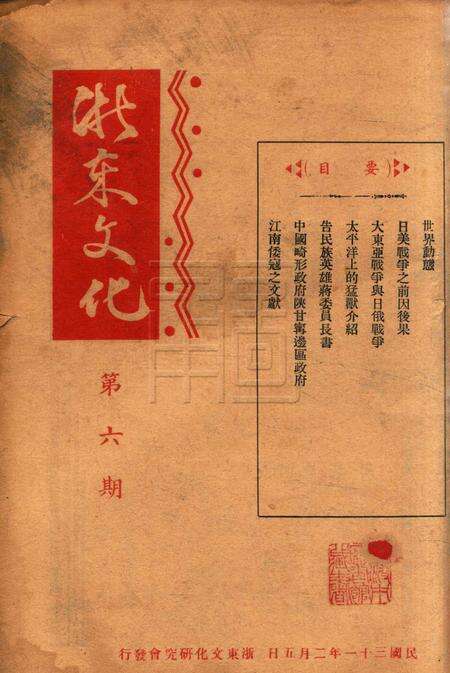 浙東文化
第六期
(要目)
世界動態
日美戰爭之前因後果
大東亞戰爭與日俄戰爭
太平洋上的猛獸介紹
告民族英雄蔣委員長書
中國畸形政府陝甘寧邊區政府
江南倭寇之文獻
民國三十一年二月五日 浙東文化硏究會發行